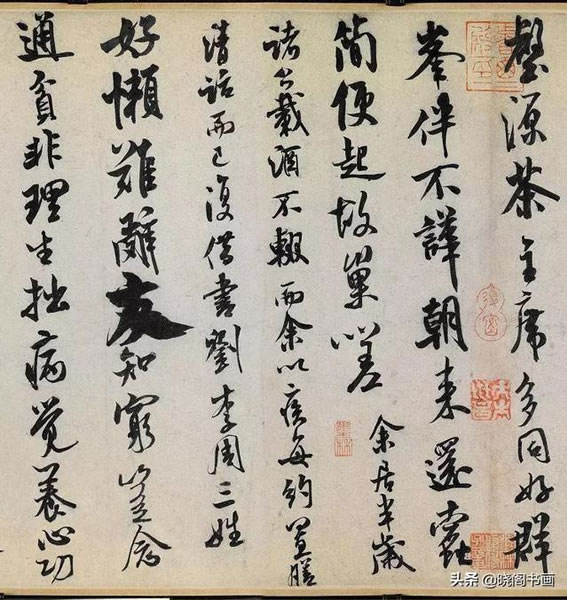 壑源茶主席多同好群
峯伴不譁朝来還蠹
簡便起故巢嗟 余居半歲
諸公載酒不輟而余以疾每約置膳
清話而已復借書劉李周三姓
好懶難辭友知窮豈念
通貧非理生拙病覺養心功
头条 @晓阁书画